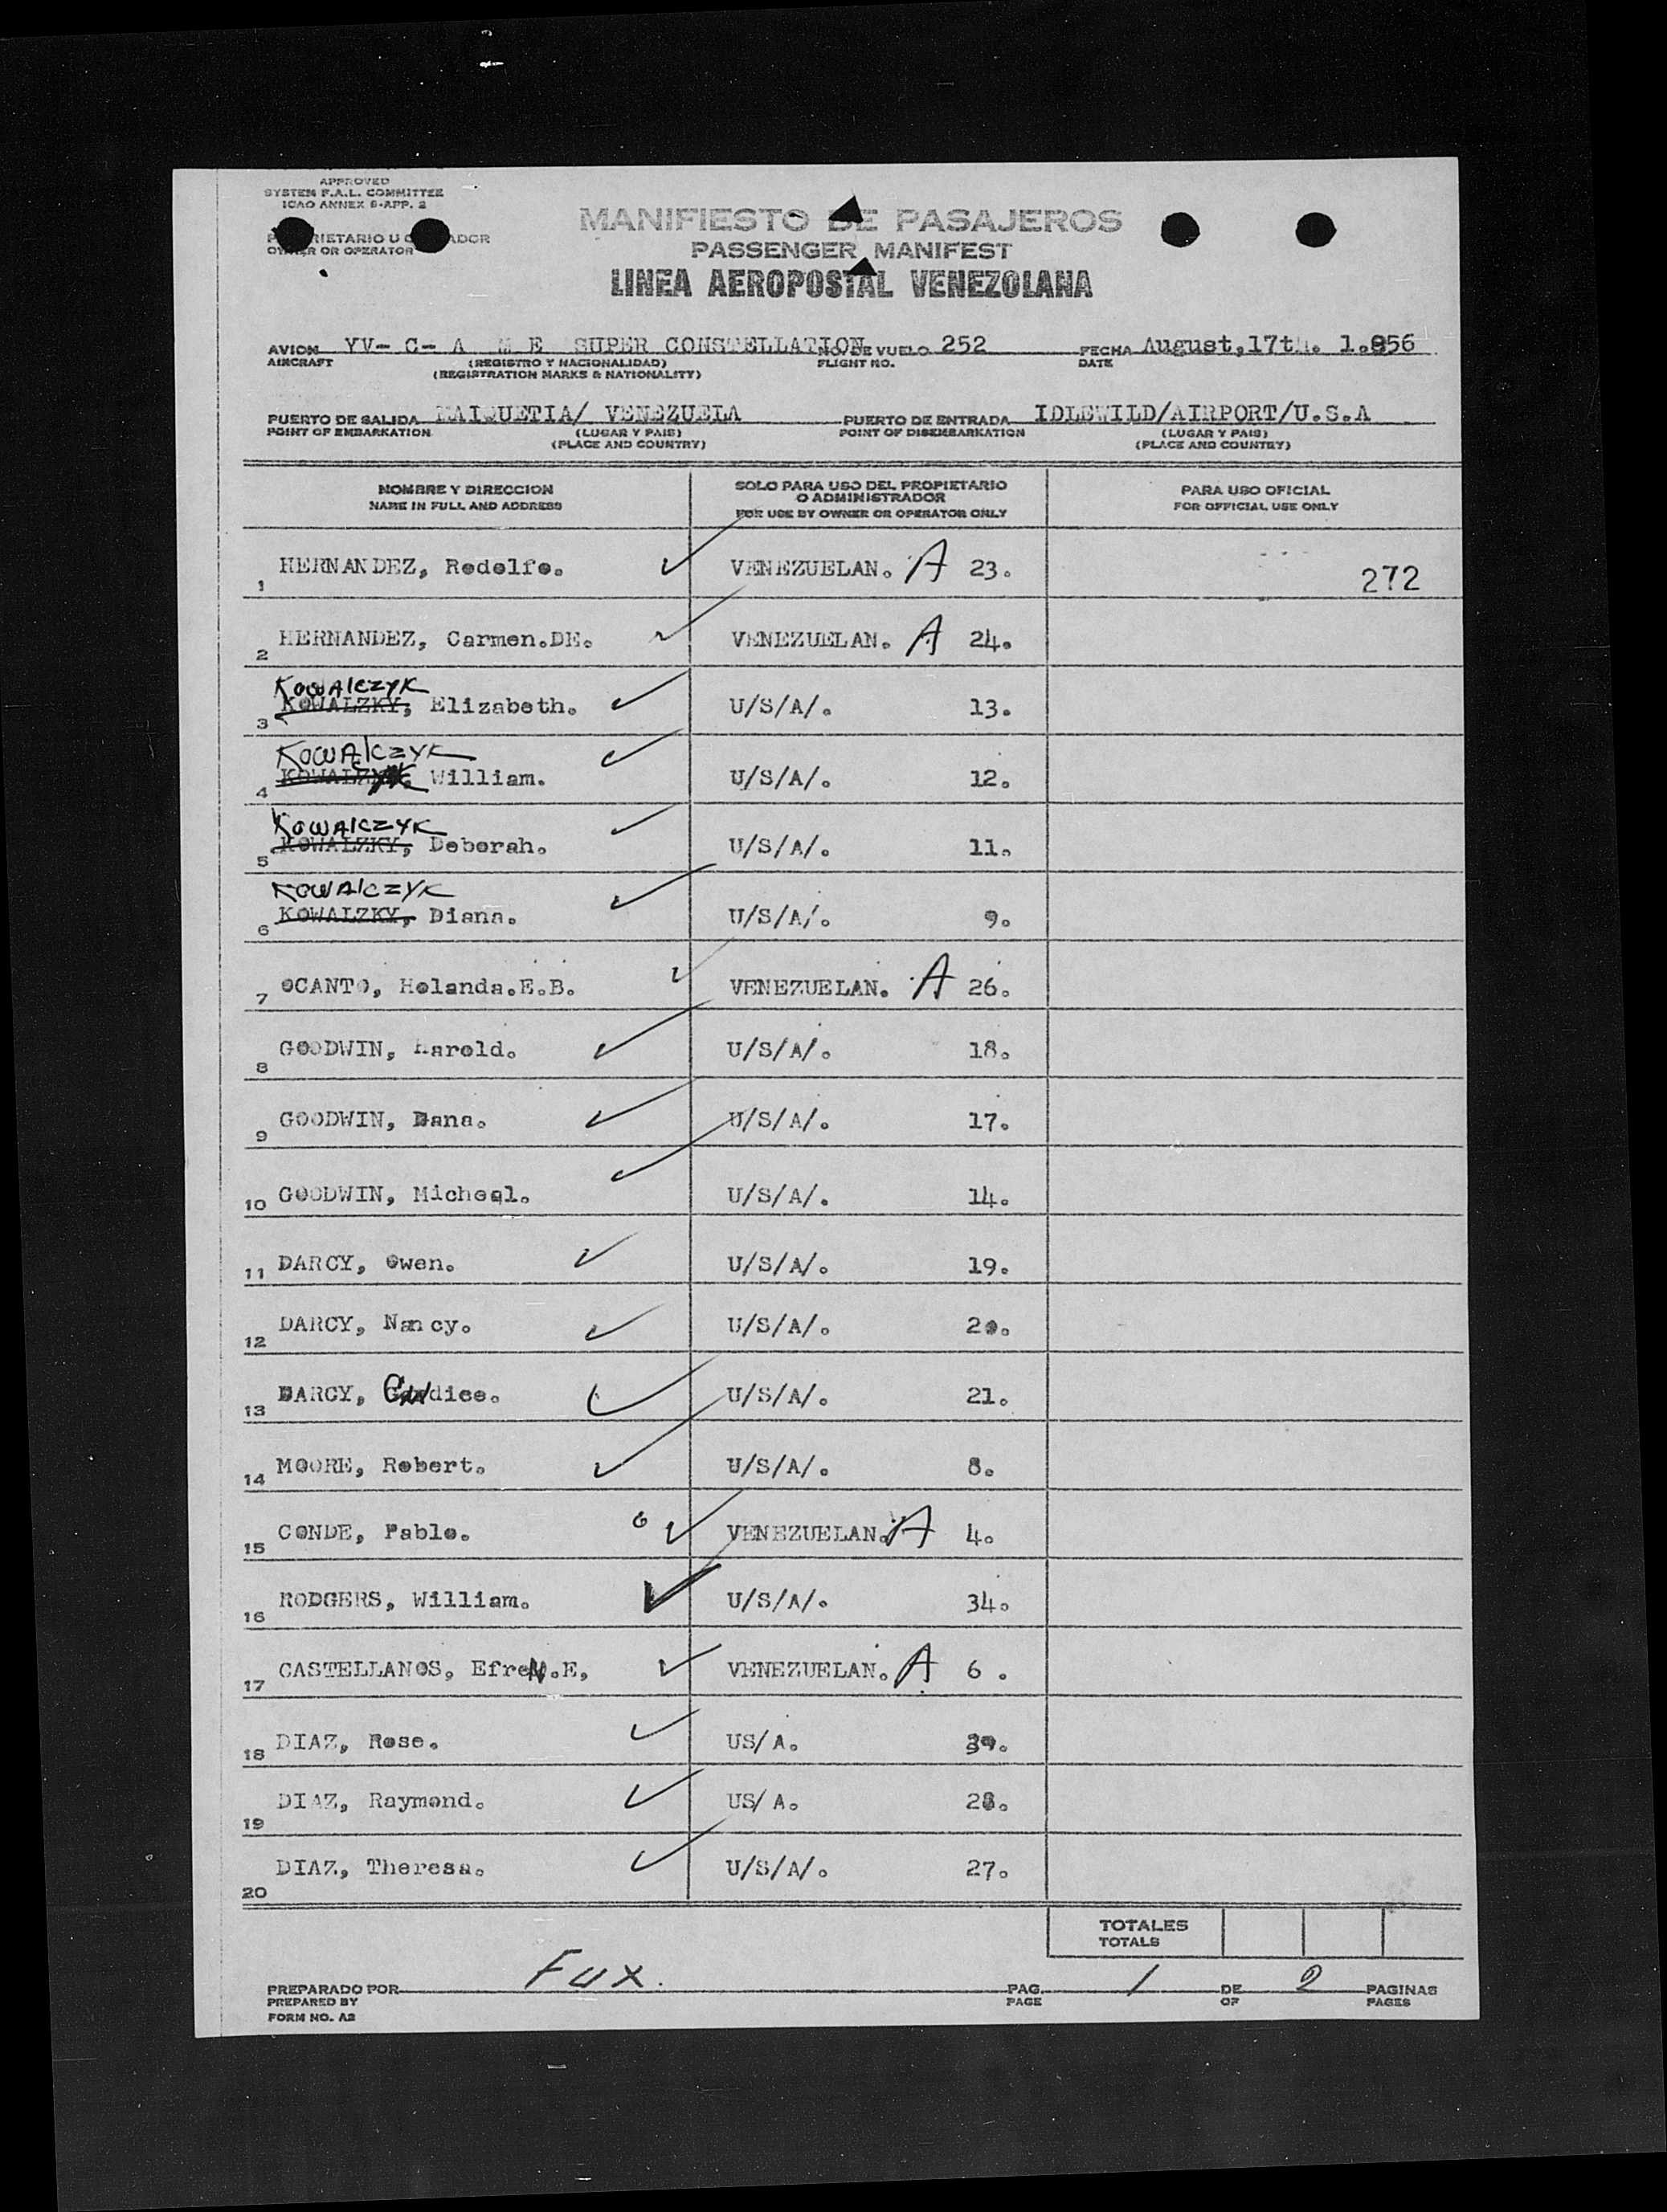 APPROVED
SYSTEM F.A.L. COMMITTEE
ICAO ANNEX 9-APP. 2
MANIFIESTO DE PASAJEROS
PASSENGER MANIFEST
LINEA AEROPOSTAL VENEZOLANA
OR OPERATOR
AVION YV- C- A M E SUPER CONSTELLATION NO. DE VUELO 252 FECHA August, 17th. 1.956
AIRCRAFT (REGISTRO Y NACIONALIDAD) FLIGHT NO. DATE
(REGISTRATION MARKS & NATIONALITY)
PUERTO DE SALIDA MAIQUETIA/ VENEZUELA PUERTO DE ENTRADA IDLEWILD/AIRPORT/U.S.A
POINT OF EMBARKATION (LUGAR Y PAIS) POINT OF DISEMBARKATION (LUGAR Y PAIS)
(PLACE AND COUNTRY) (PLACE AND COUNTRY)
NOMBRE Y DIRECCION SOLO PARA USO DEL PROPIETARIO PARA USO OFICIAL
O ADMINISTRADOR
NAME IN FULL AND ADDRESS FOR USE BY OWNER OR OPERATOR ONLY FOR OFFICIAL USE ONLY
1 HERNANDEZ, Rodolfo. VENEZUELAN. A 23. 272
2 HERNANDEZ, Carmen.DE. VENEZUELAN. A 24.
KOWALCZYK
3 KOWALZKY, Elizabeth. U/S/A/. 13.
KOWALCZYK
4 William. U/S/A/. 12.
KOWALCZYK
5 KOWALZKY, Deborah. U/S/A/. 11.
KOWALCZYK
6 KOWALZKY, Diana. U/S/A/. 9.
7 OCANTO, Holanda.E.B. VENEZUELAN. A 26.
8 GOODWIN, Harold. U/S/A/. 18.
9 GOODWIN, Dana. U/S/A/. 17.
10 GOODWIN, Micheal. U/S/A/. 14.
11 DARCY, Owen. U/S/A/. 19.
12 DARCY, Nancy. U/S/A/. 20.
13 DARCY, Candice. U/S/A/. 21.
14 MOORE, Robert. U/S/A/. 8.
15 CONDE, Pablo. VENEZUELAN. A 4.
16 RODGERS, William. U/S/A/. 34.
17 CASTELLANOS, EfreN.E, VENEZUELAN. A 6 .
18 DIAZ, Rose. US/A.
19 DIAZ, Raymond. US/ A. 28.
20 DIAZ, Theresa. U/S/A/. 27.
TOTALES
TOTALS
PREPARADO POR Fux. PAG. 1 DE 2 PAGINAS
PREPARED BY PAGE OF PAGES
FORM NO. A2